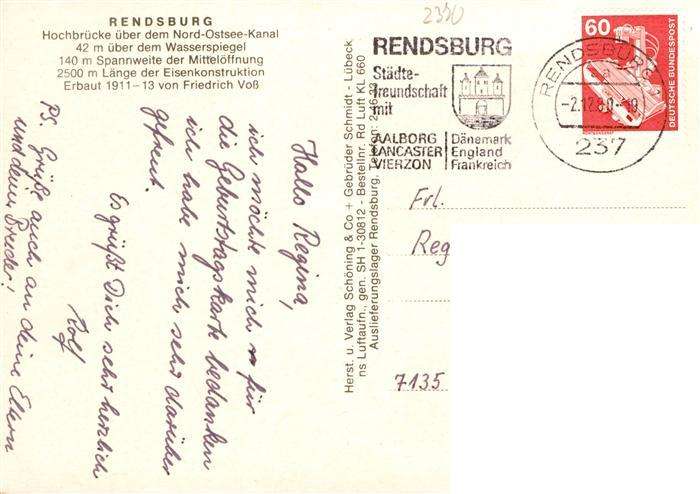 RENDSBURG
Hochbrücke über dem Nord-Ostsee-Kanal
42 m über dem Wasserspiegel
140 m Spannweite der Mittelöffnung
2500 m Länge der Eisenkonstruktion
Erbaut 1911–13 von Friedrich Voß
Hallo Regina,
ich möchte mich für
die Geburtstagskarte bedanken
ich habe mich sehr darüber
gefreut.
Es grüßt Dich sehr herzlich
Rolf
PS. Grüße auch an deine Eltern
und dein Bruder!
Herst. u. Verlag Schöning & Co + Gebrüder Schmidt - Lübeck
ns Luftaufn., gen. SH 1-30812 - Bestellnr. Rd Luft KL 660
Auslieferungslager Rendsburg, Telefon:
2330
RENDSBURG
Städte-
freundschaft
mit
AALBORG Dänemark
LANCASTER England
VIERZON Frankreich
RENDSBURG
237
60
DEUTSCHE BUNDESPOST
Frl.
Reg
7135